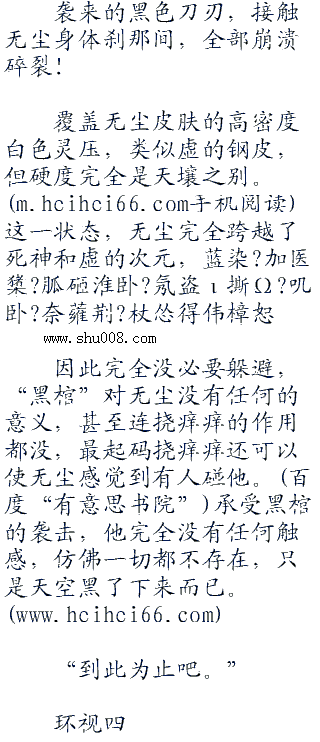 袭来的黑色刀刃，接触
无尘身体刹那间，全部崩溃
碎裂！
覆盖无尘皮肤的高密度
白色灵压，类似虚的钢皮，
但硬度完全是天壤之别。
(m.hcihci66.com手机阅读)
这一状态，无尘完全跨越了
死神和虚的次元，蓝染?加医
橥?胍砸淮卧?氖盗ι撕Ω?叽
卧?奈蕹荆?杖怂得伟樟恕
www.shu008.com
因此完全没必要躲避，
“黑棺”对无尘没有任何的
意义，甚至连挠痒痒的作用
都没，最起码挠痒痒还可以
使无尘感觉到有人碰他。(百
度“有意思书院”)承受黑棺
的袭击，他完全没有任何触
感，仿佛一切都不存在，只
是天空黑了下来而已。
(www.hcihci66.com)
“到此为止吧。”
环视四